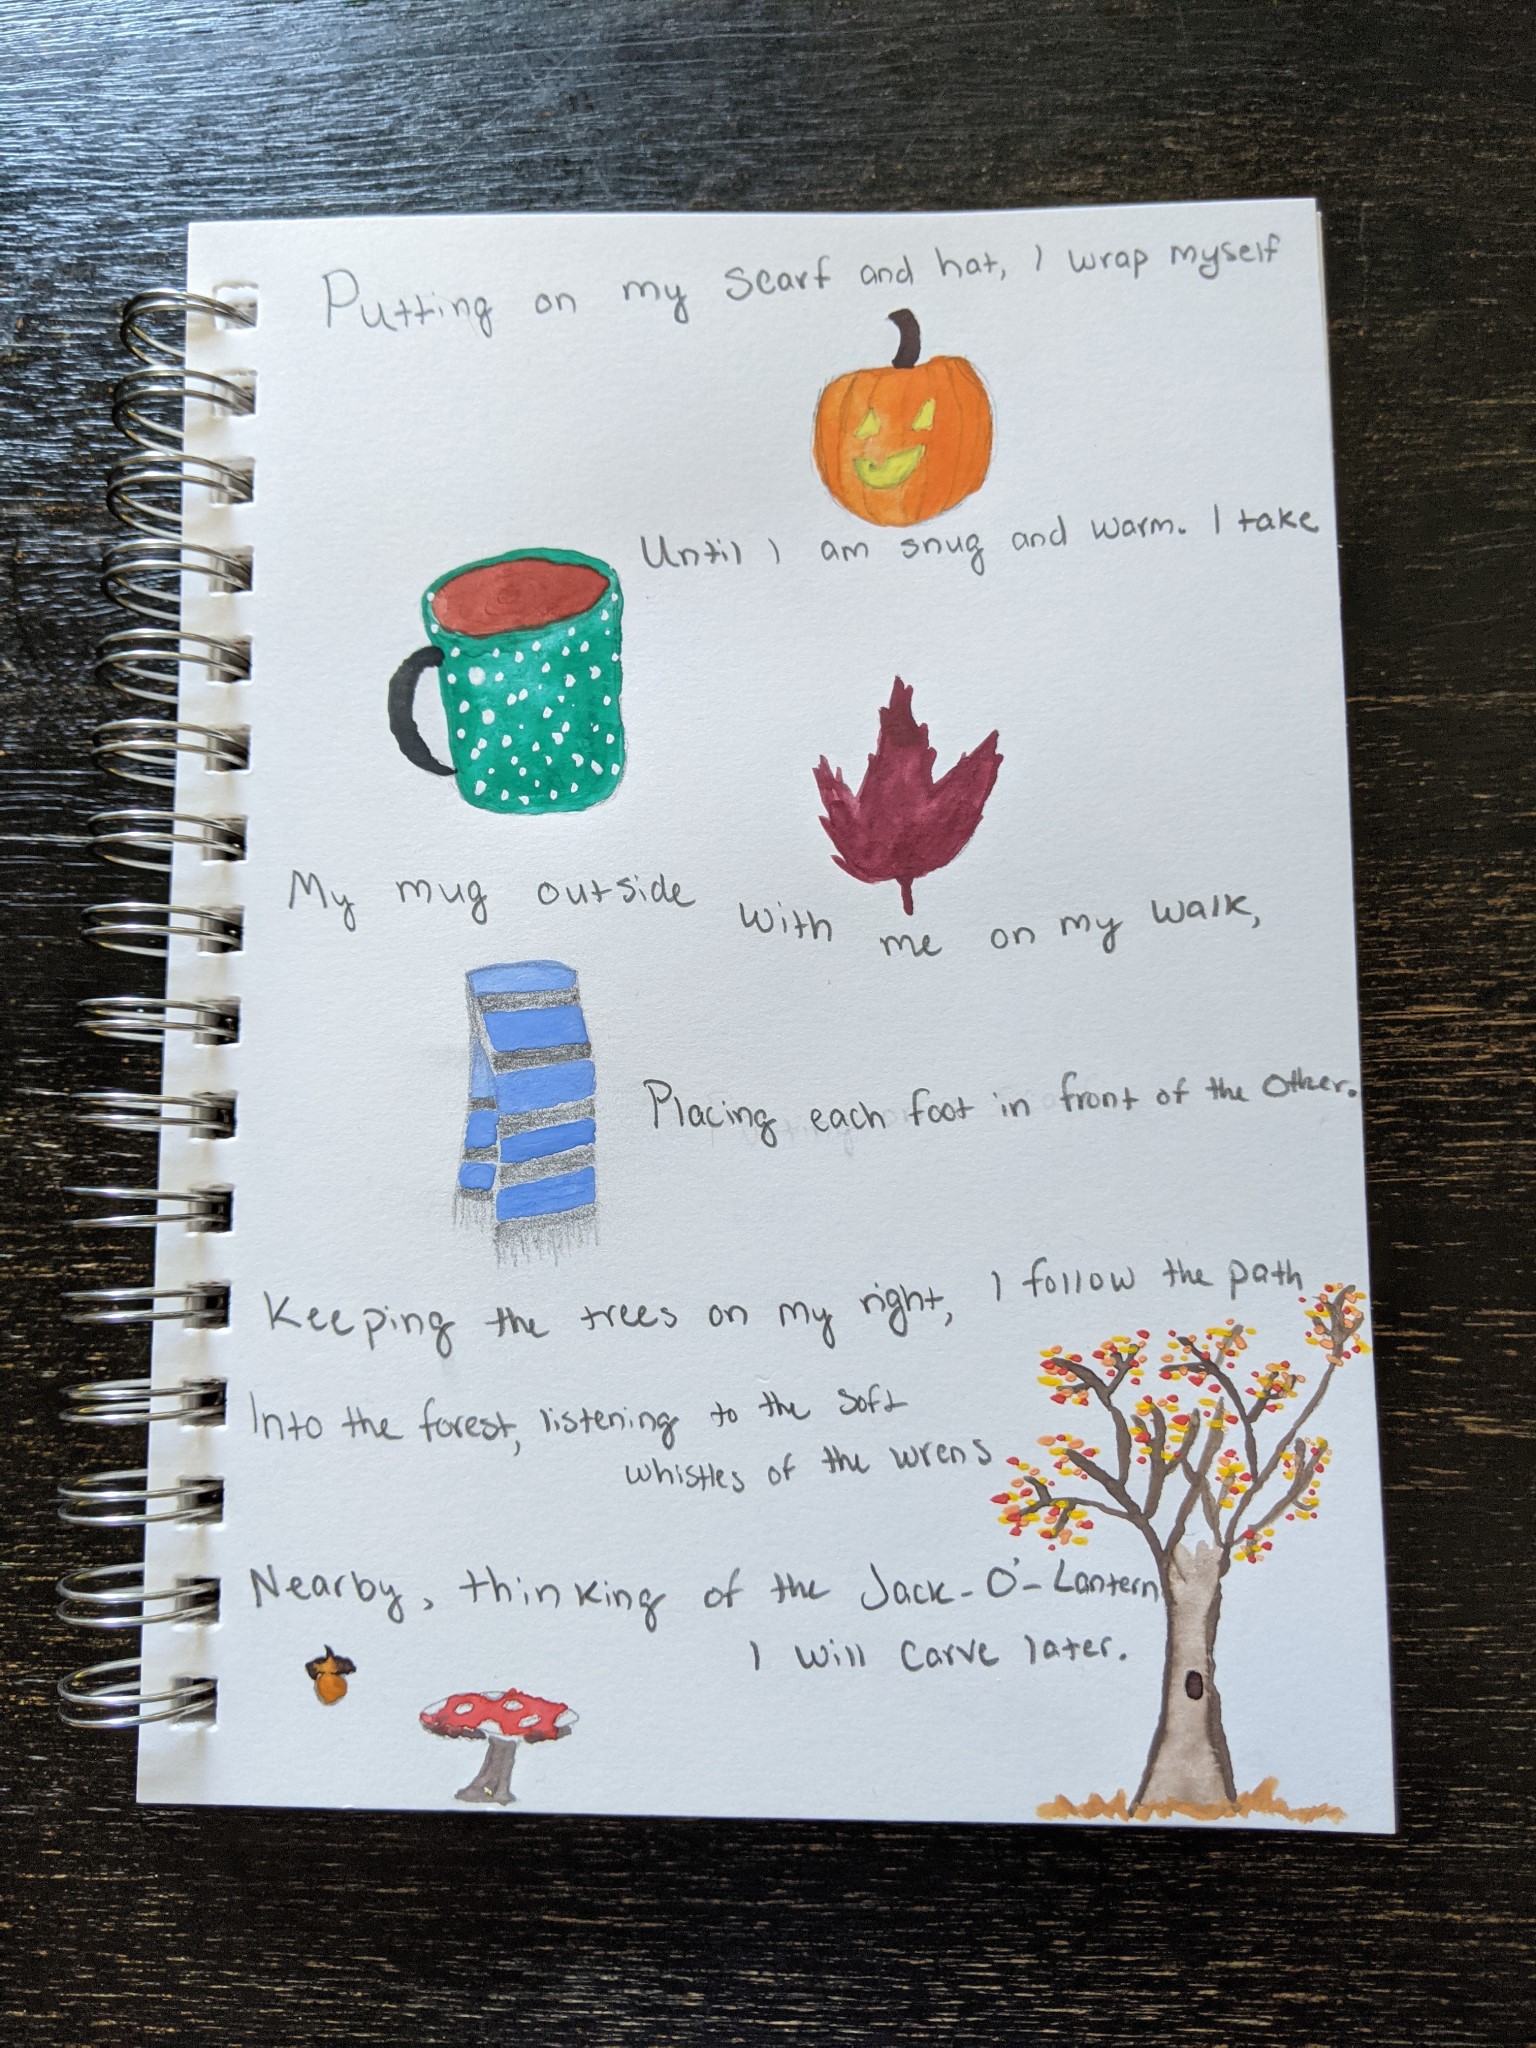 Putting on my scarf and hat, I wrap myself
Until I am snug and warm. I take
My mug outside with me on my walk,
Placing each foot in front of the other.
Keeping the trees on my right, I follow the path
Into the forest, listening to the soft
whistles of the wrens
Nearby, thinking of the Jack-O'-Lantern
I will carve later.